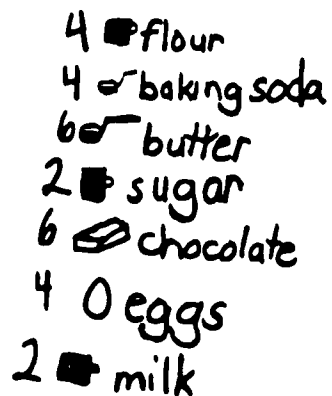 4 flour
4 baking soda
6 butter
2 sugar
6 chocolate
4 eggs
2 milk